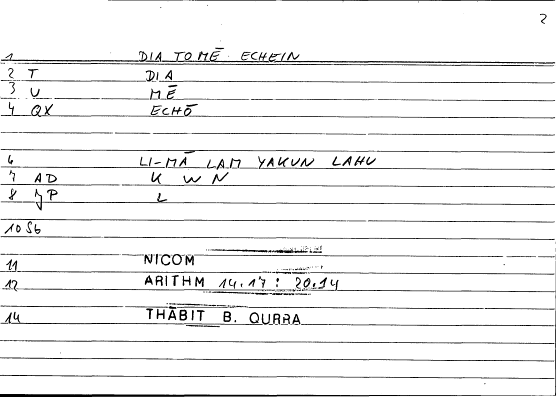 2
1 DIA TO MĒ ECHEIN
2 T DIA
3 U MĒ
4 QX ECHŌ
6 LI-MĀ LAM YAKUN LAHU
7 AD K W N
8 JP L
10 Sb
11 NICOM
12 ARITHM 14.17 : 20.14
14 THĀBIT B. QURRA